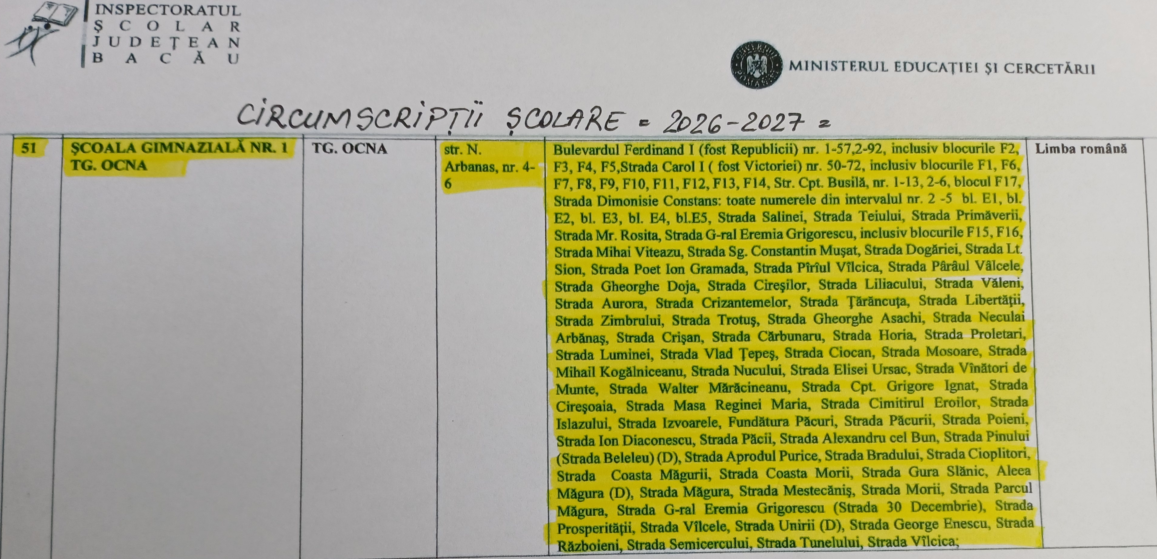 INSPECTORATUL
ȘCOLAR
JUDEȚEAN
BACĂU
MINISTERUL EDUCAȚIEI ȘI CERCETĂRII
CIRCUMSCRIPȚII ȘCOLARE = 2026-2027 =
51
ȘCOALA GIMNAZIALĂ NR. 1
TG. OCNA
TG. OCNA
str. N.
Arbanas, nr. 4-
6
Bulevardul Ferdinand I (fost Republicii) nr. 1-57,2-92, inclusiv blocurile F2,
F3, F4, F5,Strada Carol I ( fost Victoriei) nr. 50-72, inclusiv blocurile F1, F6,
F7, F8, F9, F10, F11, F12, F13, F14, Str. Cpt. Busilă, nr. 1-13, 2-6, blocul F17,
Strada Dimonisie Constans: toate numerele din intervalul nr. 2 -5 bl. E1, bl.
E2, bl. E3, bl. E4, bl.E5, Strada Salinei, Strada Teiului, Strada Primăverii,
Strada Mr. Rosita, Strada G-ral Eremia Grigorescu, inclusiv blocurile F15, F16,
Strada Mihai Viteazu, Strada Sg. Constantin Mușat, Strada Dogăriei, Strada Lt.
Sion, Strada Poet Ion Gramada, Strada Pîrîul Vîlcica, Strada Pârâul Vâlcele,
Strada Gheorghe Doja, Strada Cireșilor, Strada Liliacului, Strada Văleni,
Strada Aurora, Strada Crizantemelor, Strada Țărăncuța, Strada Libertății,
Strada Zimbrului, Strada Trotuș, Strada Gheorghe Asachi, Strada Neculai
Arbănaș, Strada Crișan, Strada Cărbunaru, Strada Horia, Strada Proletari,
Strada Luminei, Strada Vlad Țepeș, Strada Ciocan, Strada Mosoare, Strada
Mihail Kogălniceanu, Strada Nucului, Strada Elisei Ursac, Strada Vînători de
Munte, Strada Walter Mărăcineanu, Strada Cpt. Grigore Ignat, Strada
Cireșoaia, Strada Masa Reginei Maria, Strada Cimitirul Eroilor, Strada
Islazului, Strada Izvoarele, Fundătura Păcuri, Strada Păcurii, Strada Poieni,
Strada Ion Diaconescu, Strada Păcii, Strada Alexandru cel Bun, Strada Pinului
(Strada Beleleu) (D), Strada Aprodul Purice, Strada Bradului, Strada Cioplitori,
Strada Coasta Măgurii, Strada Coasta Morii, Strada Gura Slănic, Aleea
Măgura (D), Strada Măgura, Strada Mestecăniș, Strada Morii, Strada Parcul
Măgura, Strada G-ral Eremia Grigorescu (Strada 30 Decembrie), Strada
Prosperității, Strada Vîlcele, Strada Unirii (D), Strada George Enescu, Strada
Războieni, Strada Semicercului, Strada Tunelului, Strada Vîlcica;
Limba română